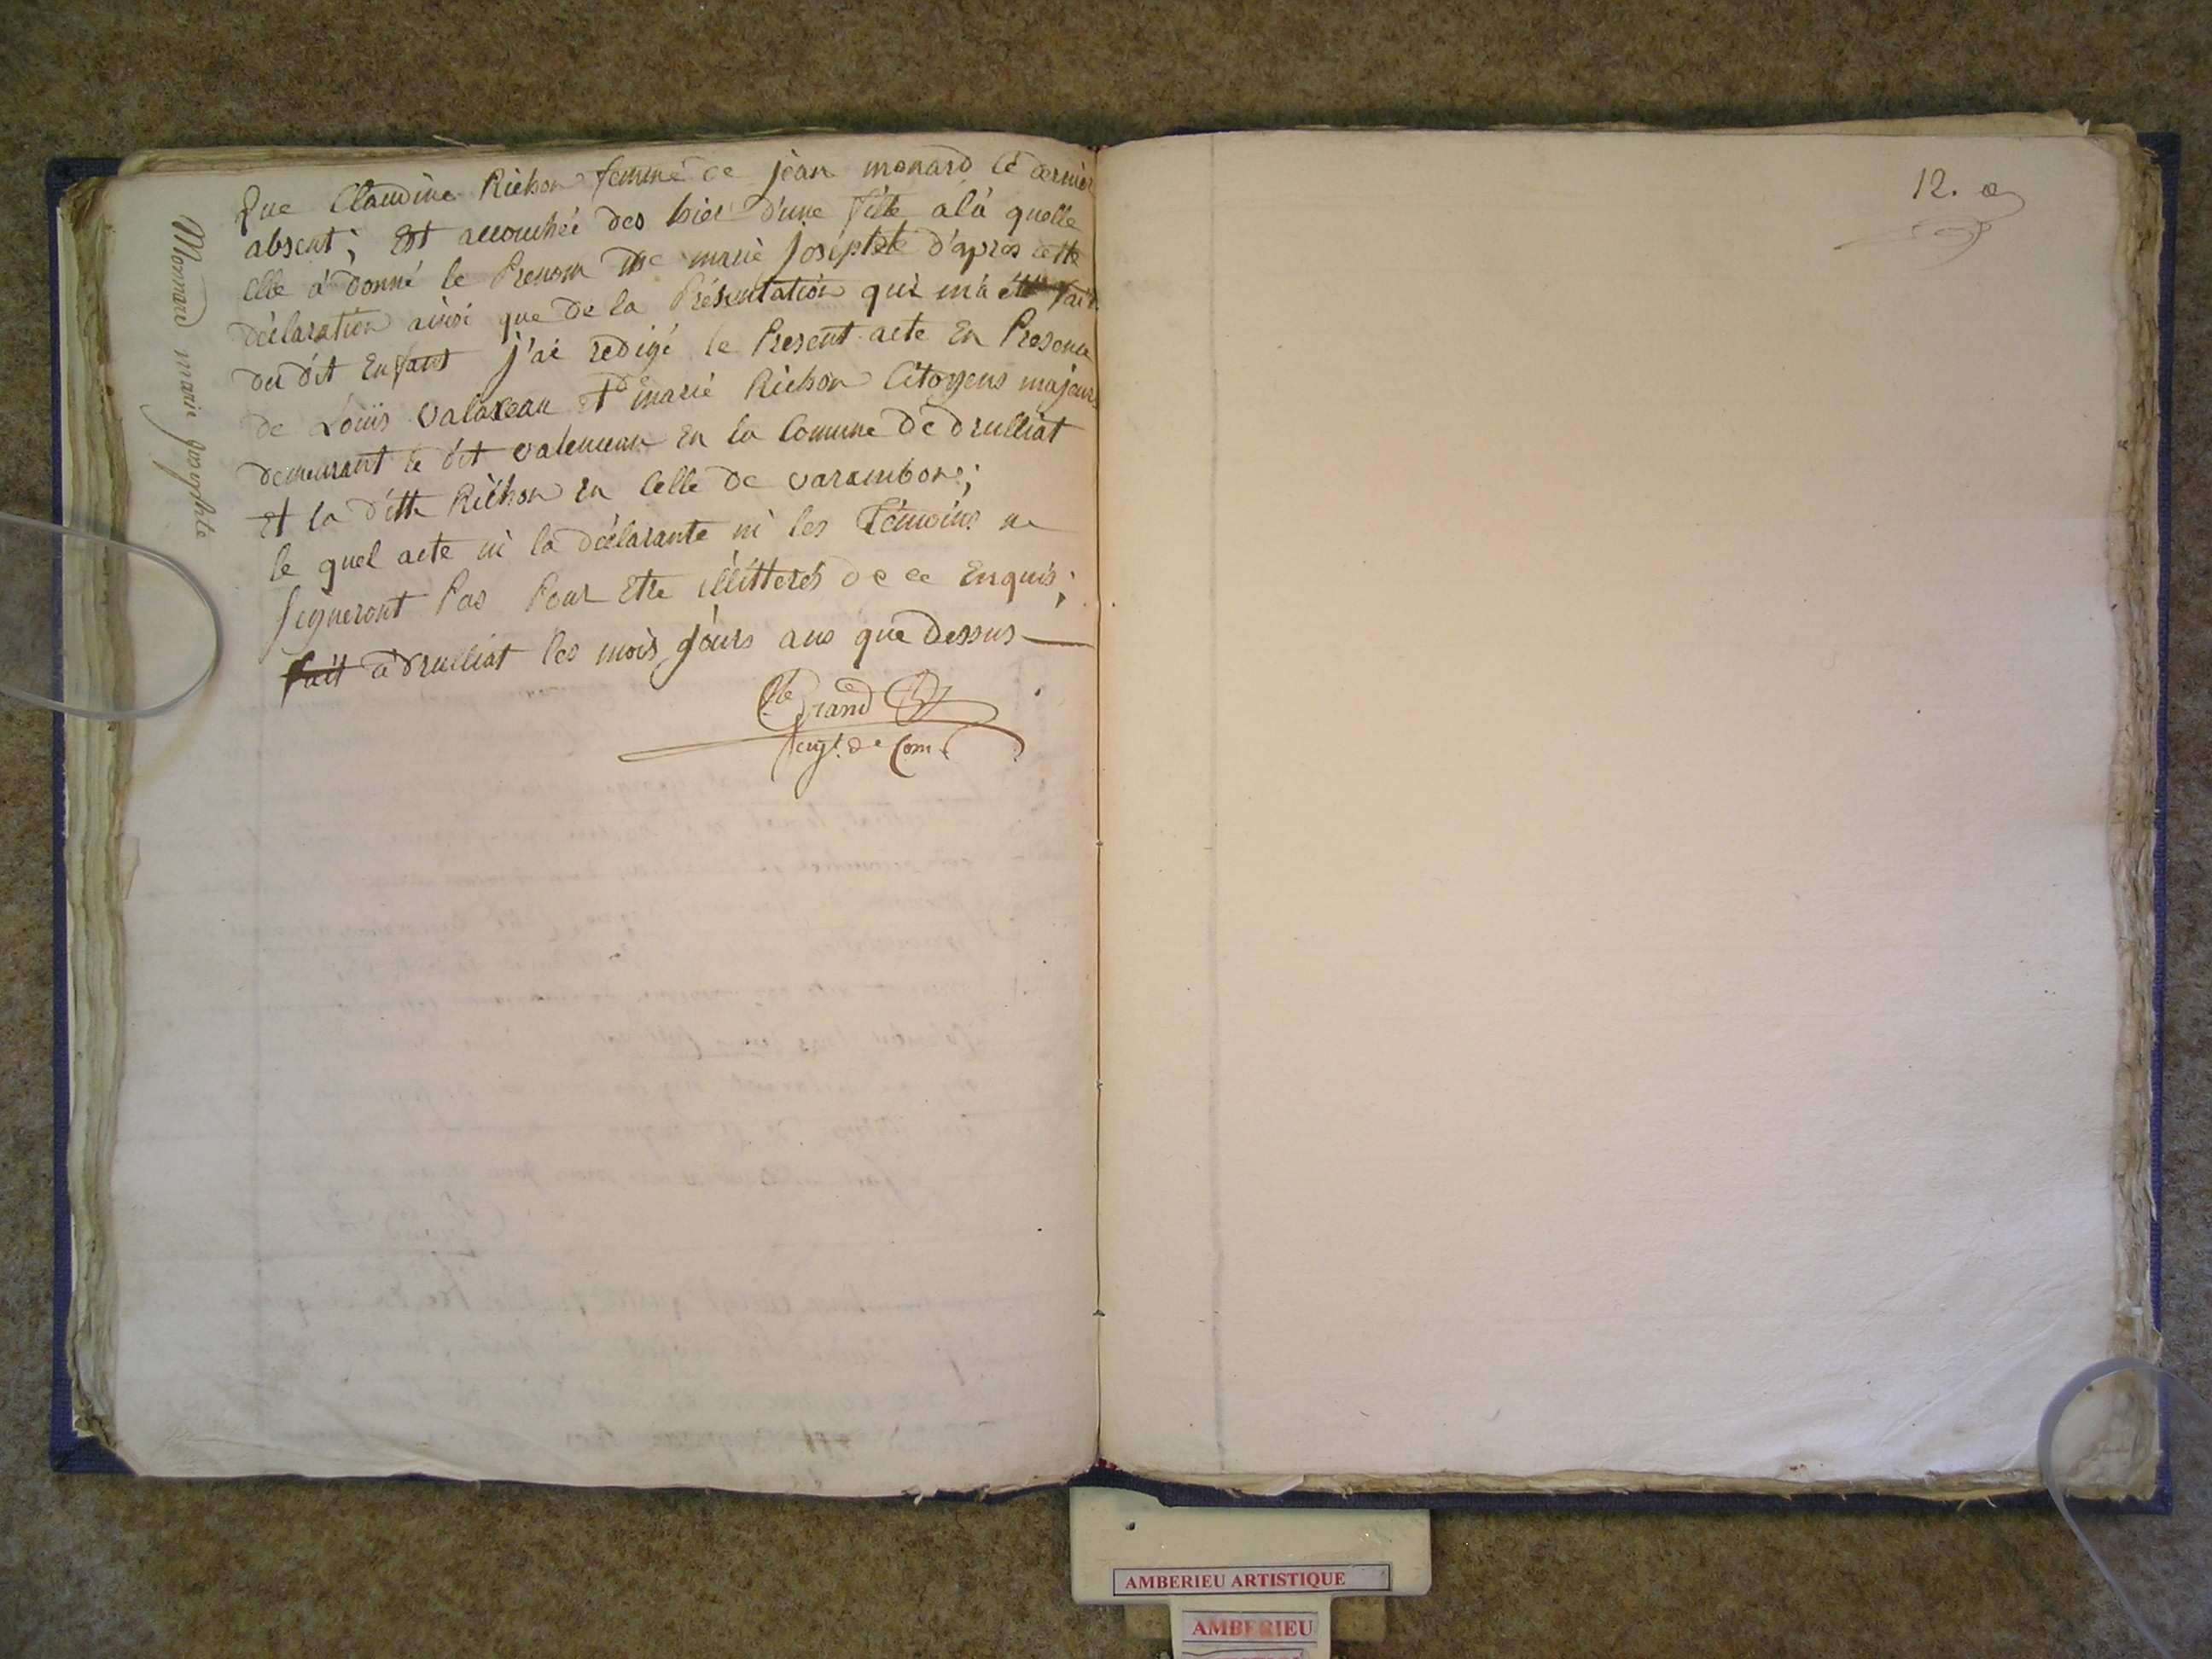 Monnard marie josephte
Que Claudine Richon femme de jean monard le dernier
absent; Est accouchée des hier d'une fille a là quelle
elle à donné le Prenom de marie josephte d'apres cette
déclaration ainsi que de la Présentation qui m'a été fait
du dit Enfant j'ai redigé le Present acte En Presence
de Loüis valaxeau Et marie Richon Citoyens majeurs
demeurant le dit en la Comune de druilliat
Et la ditte Richon en Celle de varambon;
le quel acte ni la déclarante ni les Témoins ne
signeront Pas Pour Etre illitterés de ce Enquis;
fait à druilliat les mois jours ans que dessus
Grand
de Com
12.
AMBERIEU ARTISTIQUE
AMBERIEU